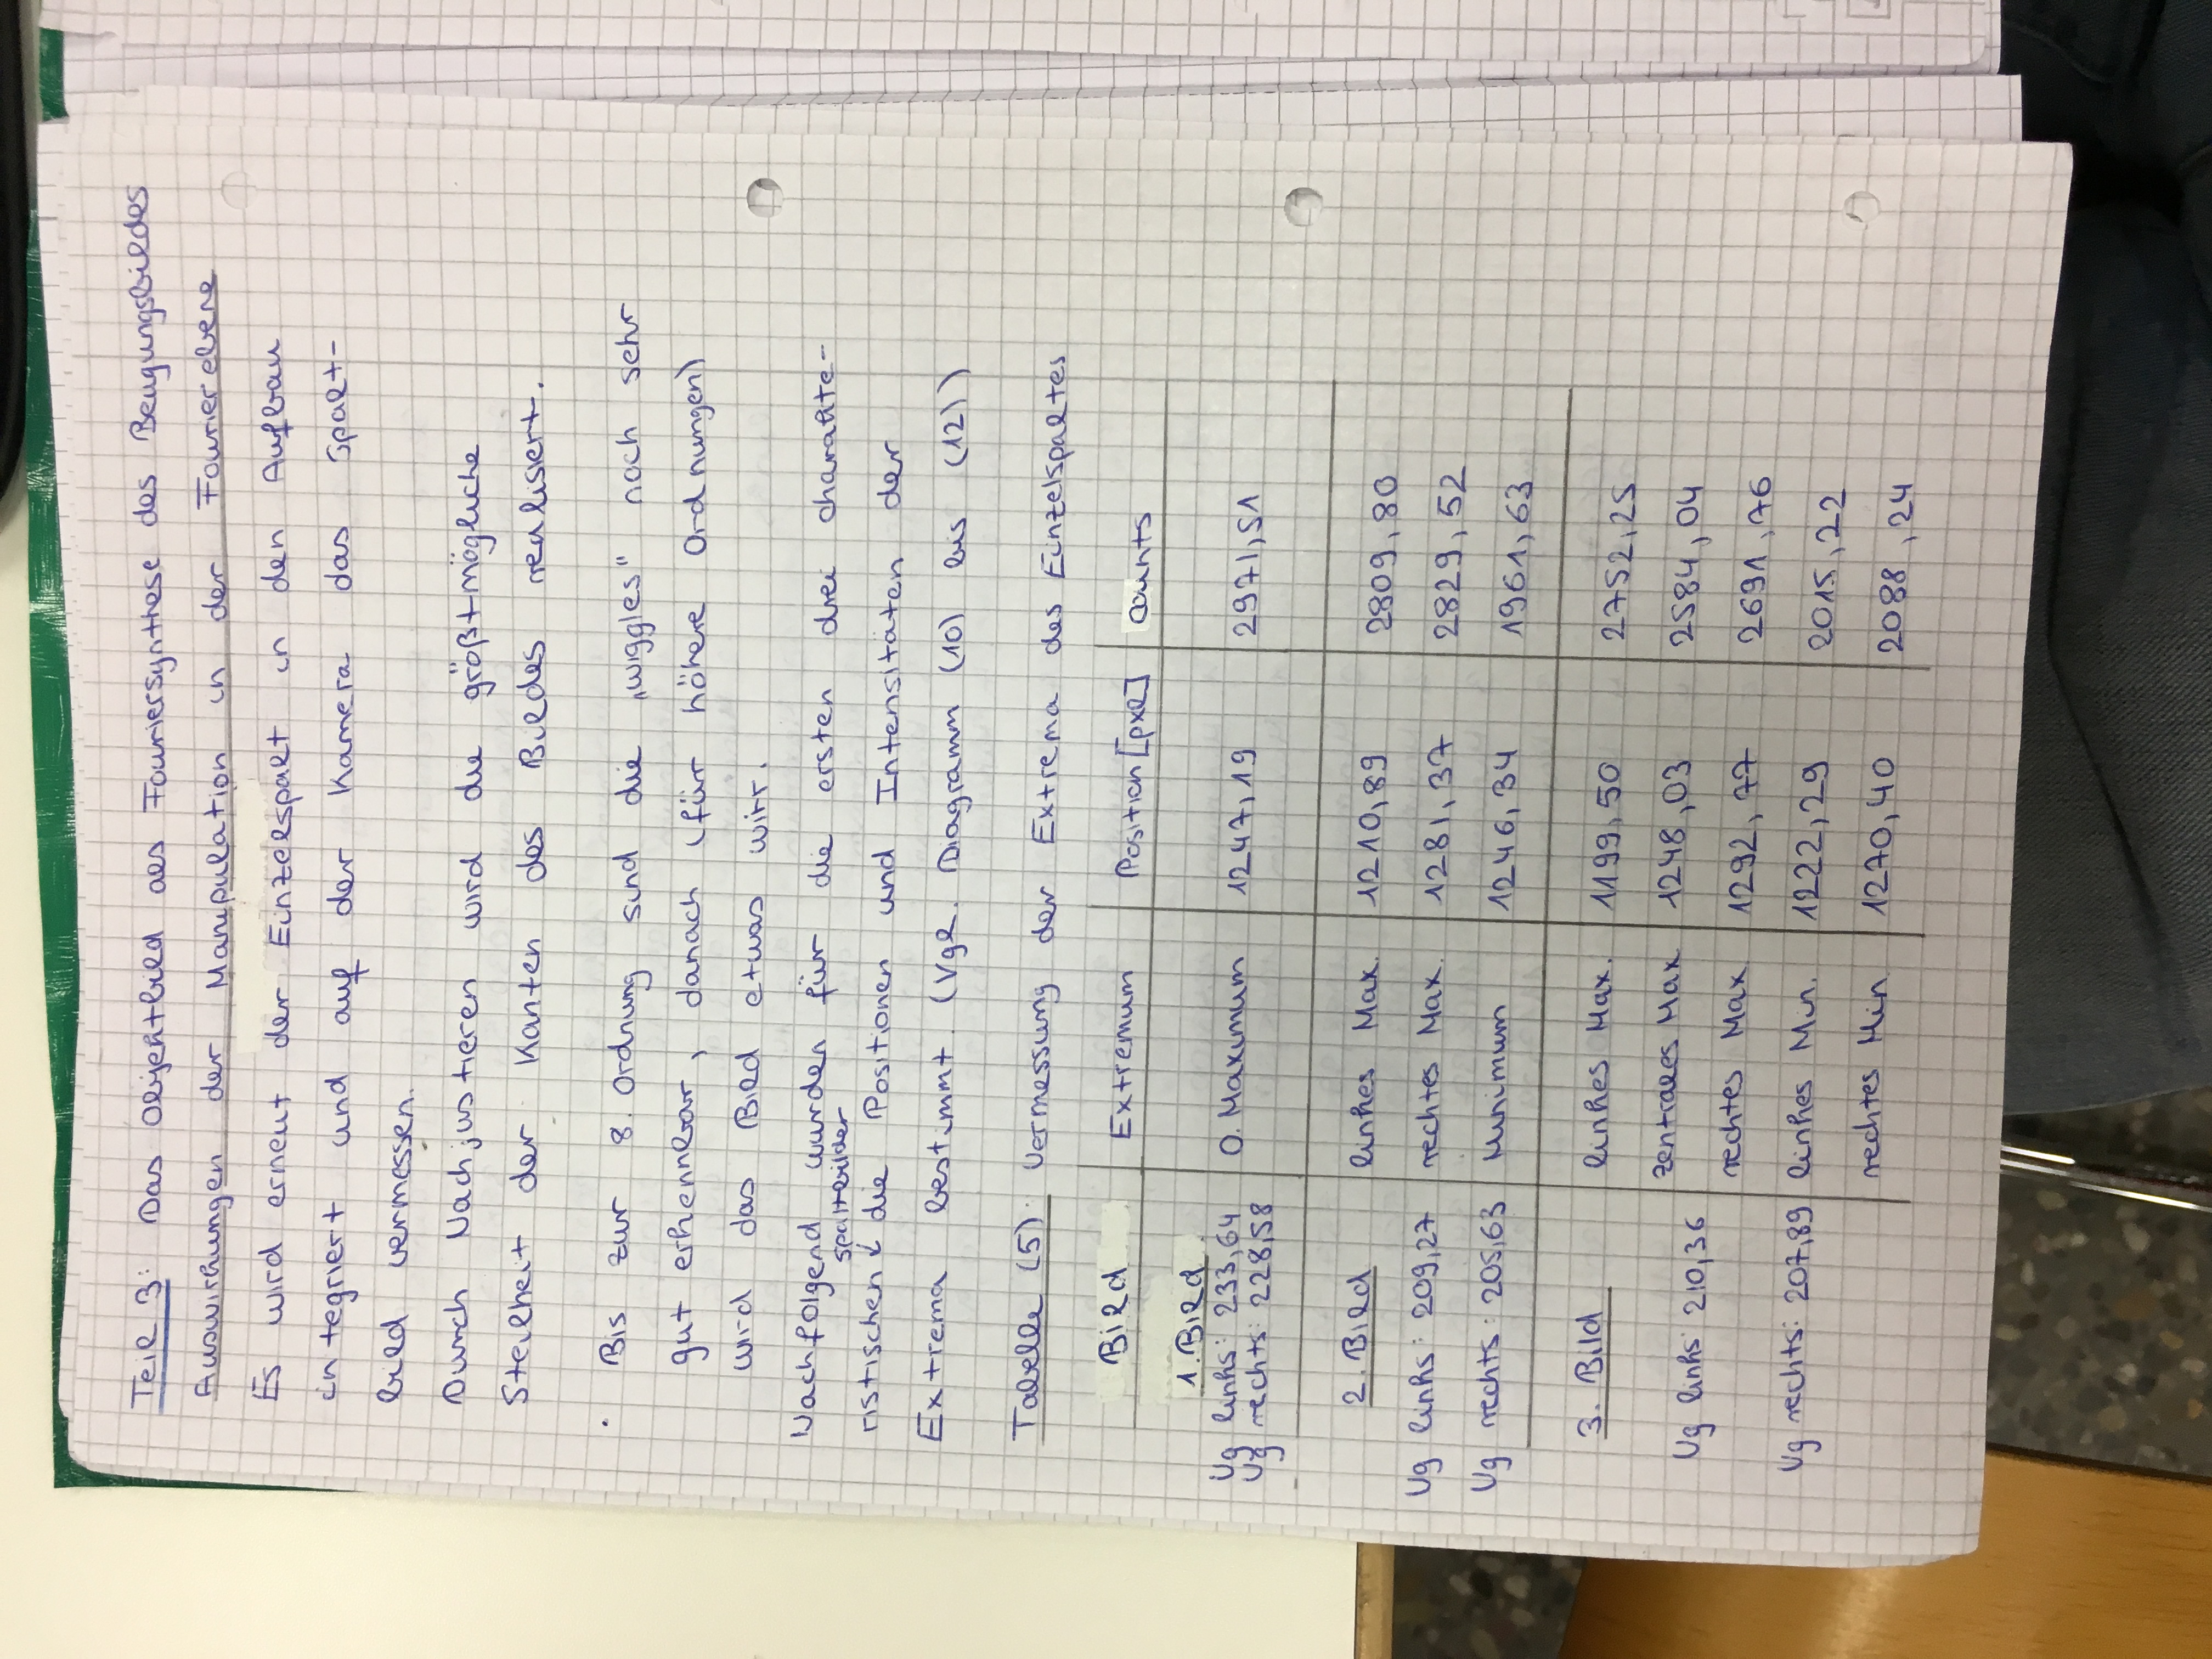 Teil 3: Das Objektbild als Fouriersynthese des Beugungsbildes
Auswirkungen der Manipulation in der Fourierebene
Es wird erneut der Einzelspalt in den Aufbau
integriert und auf der Kamera das Spalt-
bild vermessen.
Durch Nachjustieren wird die größtmögliche
Steilheit der Kanten des Bildes realisiert.
· Bis zur 8. Ordnung sind die „wiggles" noch sehr
gut erkennbar, danach (für höhere Ordnungen)
wird das Bild etwas wirr.
Nachfolgend wurden für die ersten drei charakte-
spaltbilder
ristischen ↓ die Positionen und Intensitäten der
Extrema bestimmt. (Vgl. Diagramm (10) bis (12))
Tabelle (5): Vermessung der Extrema des Einzelspaltes
Bild Extremum Position [pxl] counts
1. Bild
Ug links: 233,64 0. Maximum 1247,19 2971,51
Ug rechts: 228,58
2. Bild linkes Max. 1210,89 2809,80
Ug links: 209,27 rechtes Max. 1281,37 2829,52
Ug rechts: 205,63 Minimum 1246,34 1961,63
3. Bild linkes Max. 1199,50 2752,25
zentrales Max 1248,03 2584,04
Ug links: 210,36
rechtes Max 1292,77 2691,76
Ug rechts: 207,89 linkes Min. 1222,29 2015,22
rechtes Min 1270,40 2088,24